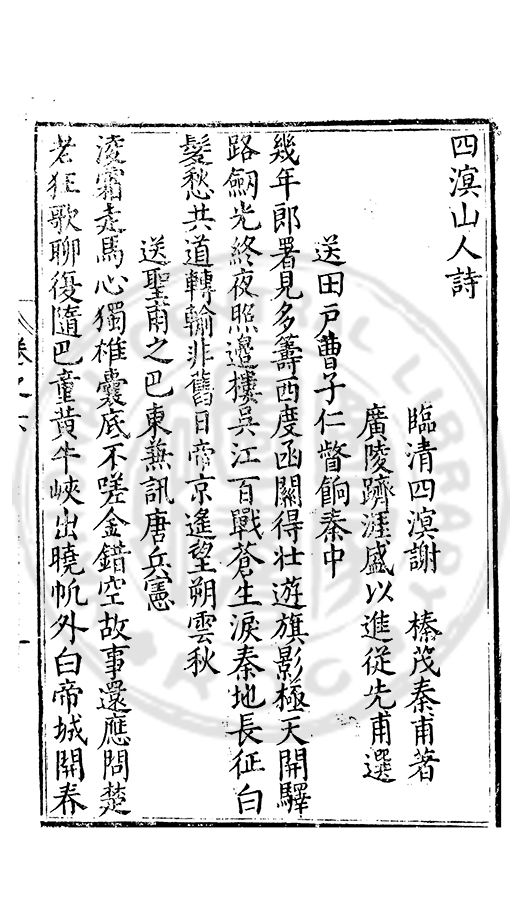 四溟山人詩
臨清四溟謝 榛茂秦甫著
廣陵躋涯盛以進從先甫選
送田戶曹子仁督餉秦中
幾年郎署見多籌西度函關得壯遊旗影極天開驛
路劒光終夜照邊樓吳江百戰蒼生淚秦地長征白
髮愁共道轉輸非舊日帝京遙望朔雲秋
送聖甫之巴東兼訊唐兵憲
凌霜走馬心獨雄囊底不嗟金錯空故事還應問楚
老狂歌聊復隨巴童黃牛峽出曉帆外白帝城開春
卷之六
一